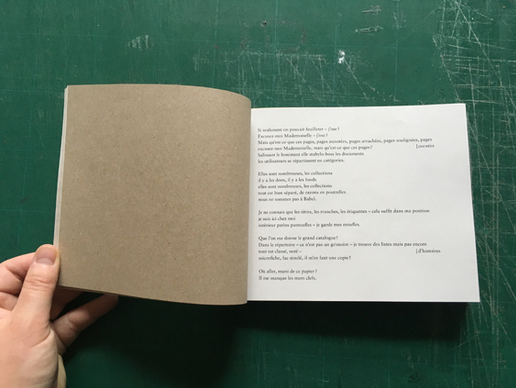 Si seulement on pouvait feuilleter – j'ose ?
Excusez-moi Mademoiselle – j'ose ?
Mais qu'est-ce que ces pages, pages pages arrachées, pages soulignées, pages
excusez-moi Mademoiselle, mais qu'est-ce que ces pages ?
Saluant le boniment elle les documents
les utilisateurs se répartissent en catégories.
Elles sont nombreuses, les collections
il y a les dons, il y a les fonds
elles sont nombreuses, les collections
tout est bien séparé, de rayons en
nous ne sommes pas à Babel.
Je ne connais que les titres, les tranches, les étiquettes – cela suffit dans ma position
je suis ici chez moi
intérieur patins pantoufles – je garde mes
Que l'on me donne le grand catalogue !
Dans le répertoire – ce n'est pas un grimoire – je trouve des listes mais pas encore
tout est classé, noté – [d'histoires.
microfiche, fac similé, il m'en faut une copie !
Où aller, muni de ce papier ?
Il me manque les mots clefs,